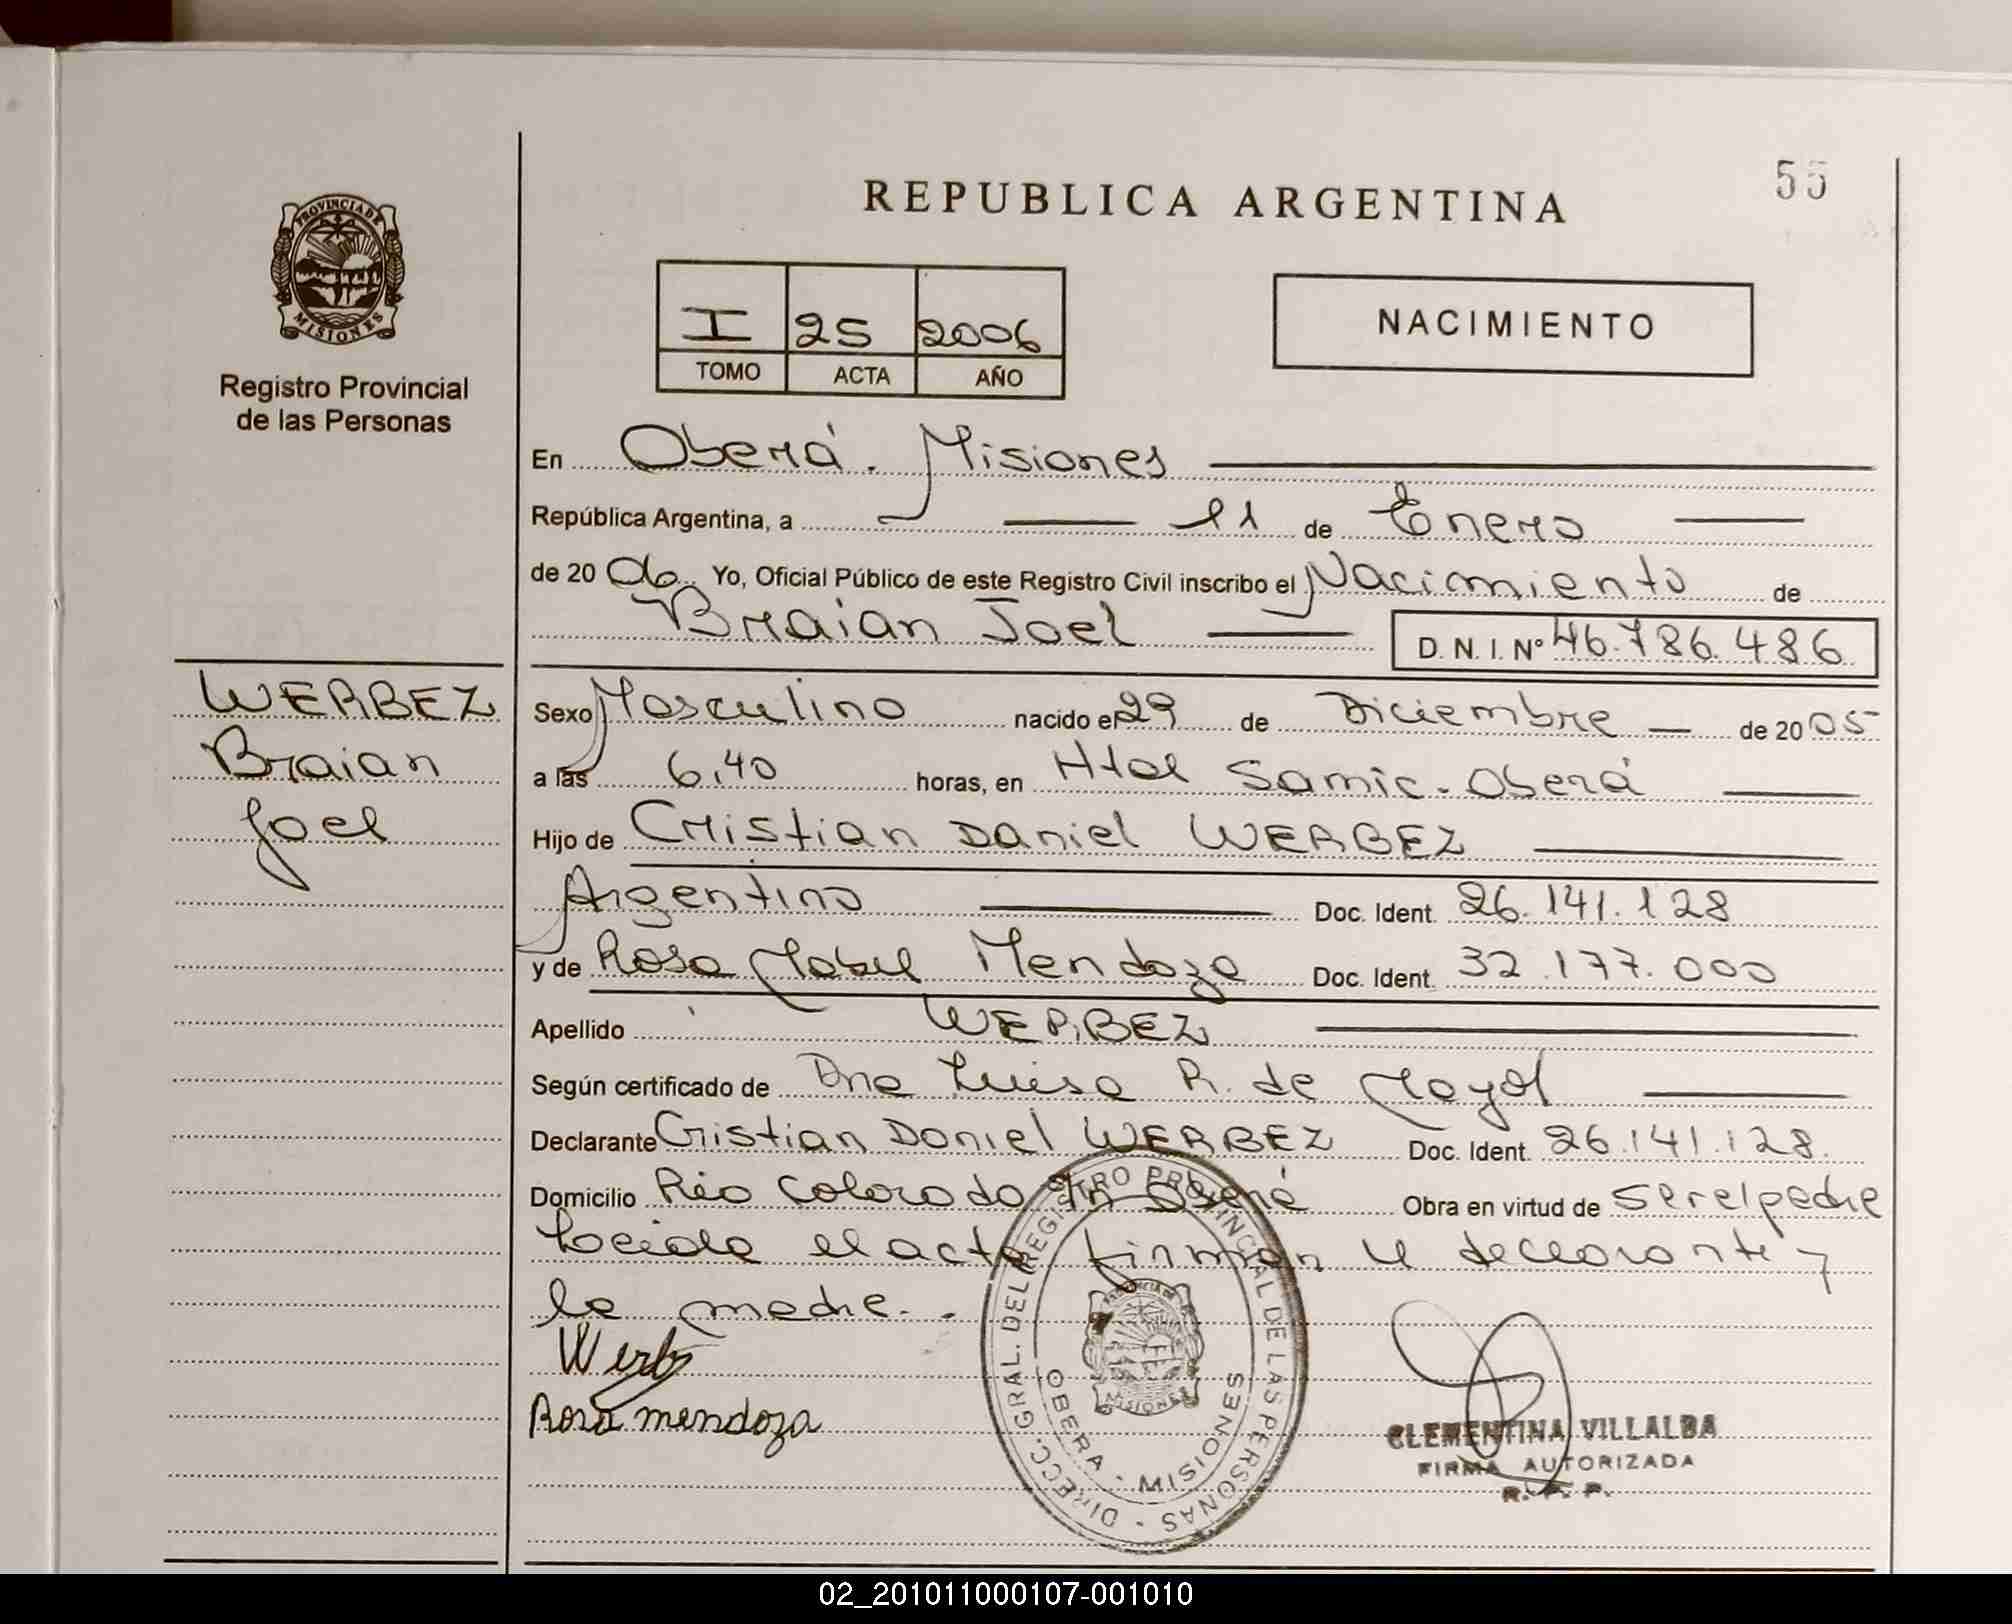 55
REPUBLICA ARGENTINA
PROVINCIA DE
MISIONES
Registro Provincial
de las Personas
I 25 2006
TOMO ACTA AÑO
NACIMIENTO
En Oberá. Misiones
República Argentina, a 11 de Enero
de 2006 Yo, Oficial Público de este Registro Civil inscribo el Nacimiento de
Braian Joel D.N.I. Nº 46.786.486
WERBEZ
Braian
Joel
Sexo Masculino nacido el 29 de Diciembre de 2005
a las 6,40 horas, en Htal Samic. Oberá
Hijo de Cristian Daniel WERBEZ
Argentino Doc. Ident. 26.141.128
y de Rosa Mabel Mendoza Doc. Ident. 32.177.000
Apellido WERBEZ
Según certificado de Dra Luisa R. de Mayol
Declarante Cristian Daniel WERBEZ Doc. Ident. 26.141.128.
Domicilio Río Colorado S/n Oberá Obra en virtud de ser el padre
Leída el acta firman el declarante y
la madre.
Werb
Rosa mendoza
DIRECC. GRAL. DEL REGISTRO PROVINCIAL DE LAS PERSONAS
OBERA - MISIONES
CLEMENTINA VILLALBA
FIRMA AUTORIZADA
R. P. P.
02_201011000107-001010